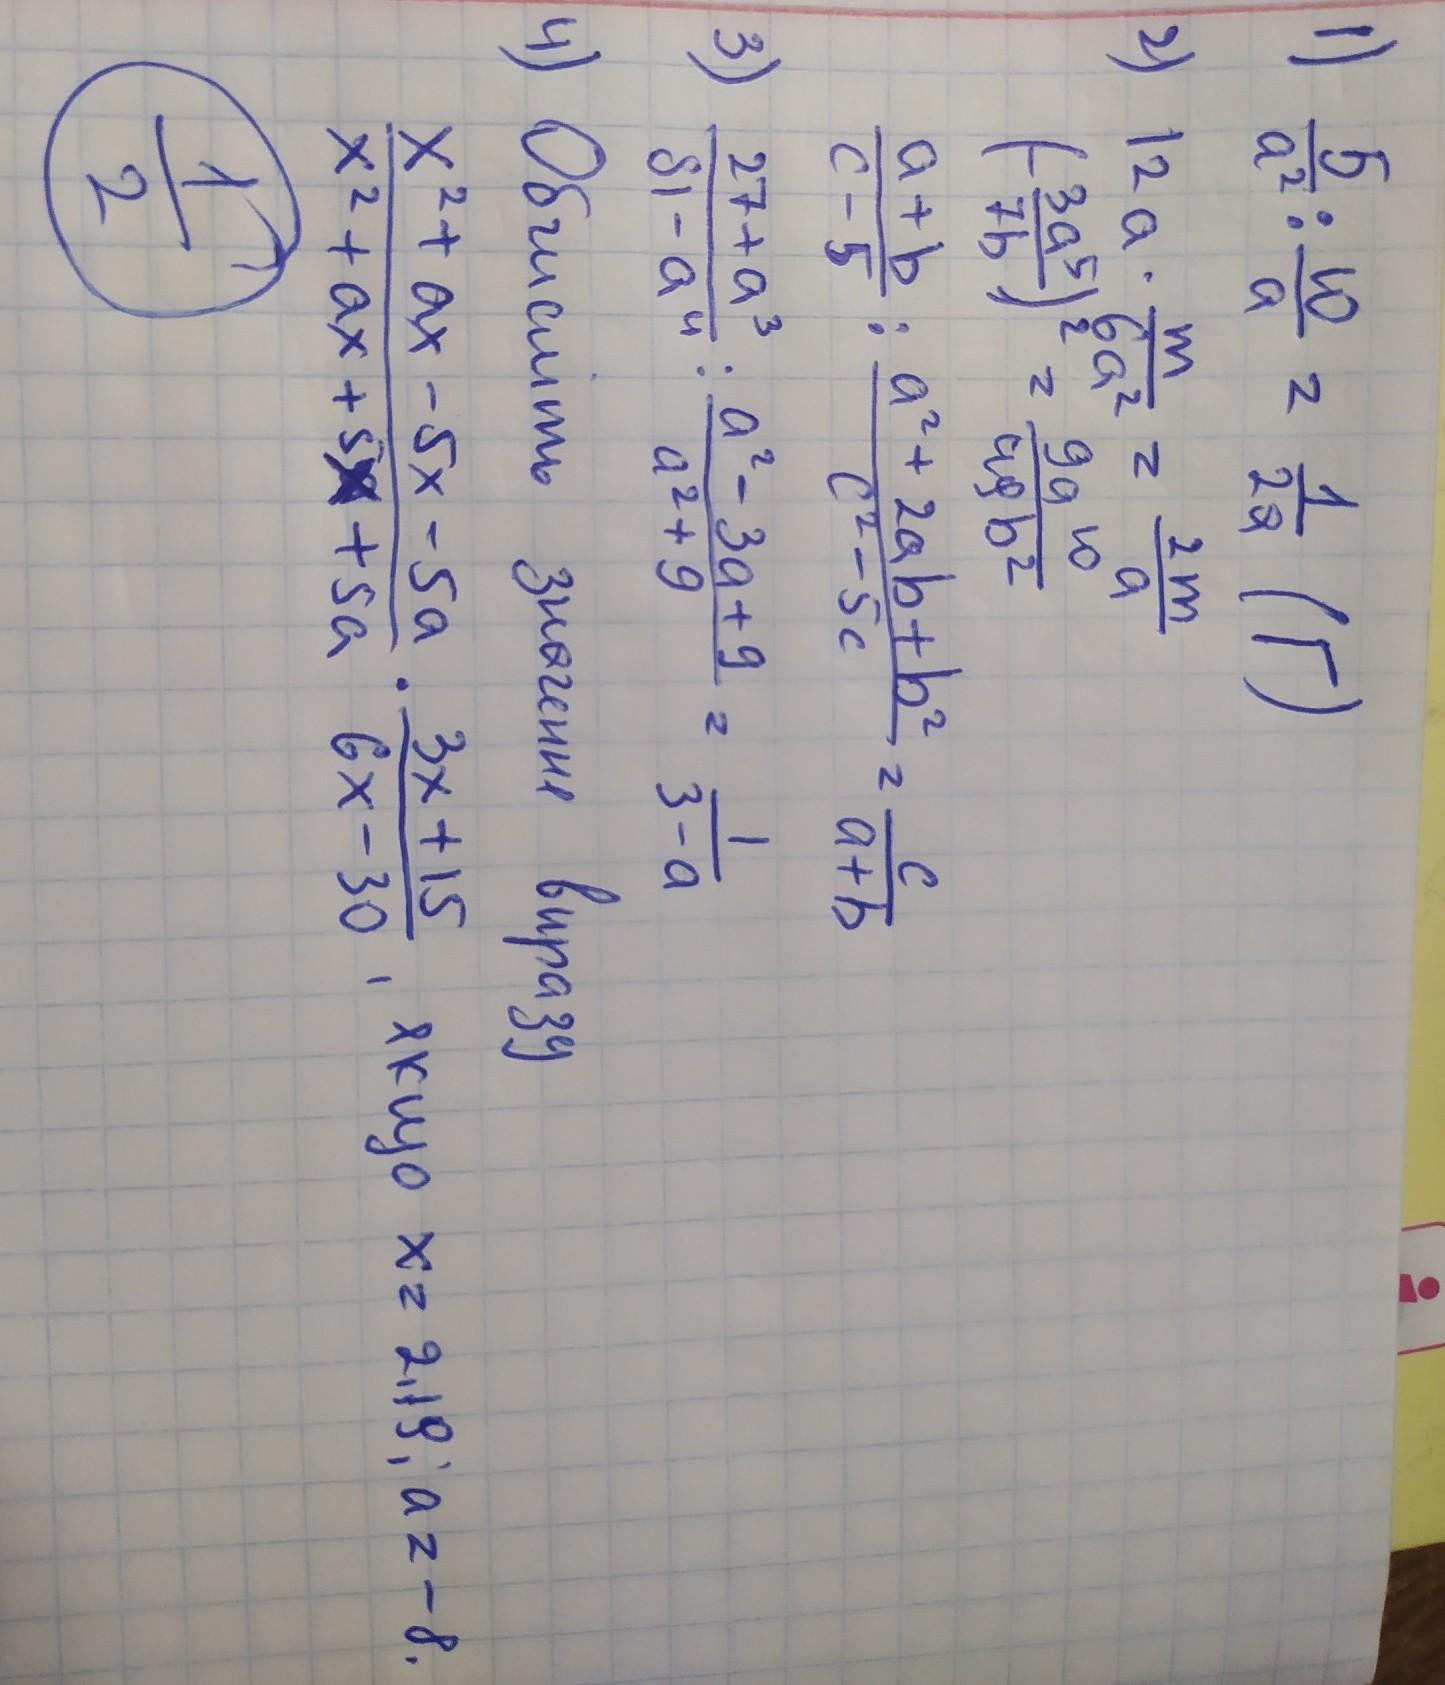 1) 5/a² : 10/a = 1/2a (Г)
2) 12a · m/6a² = 2m/a
(-3a⁵/7b)² = 9a¹⁰/49b²
a+b/c-5 : a²+2ab+b²/c²-5c = c/a+b
3) 27+a³/81-a⁴ : a²-3a+9/a²+9 = 1/3-a
4) Обчисліть значення виразу
x²+ax-5x-5a/x²+ax+5x+5a · 3x+15/6x-30, якщо x=2,19; a=-8.
1/2